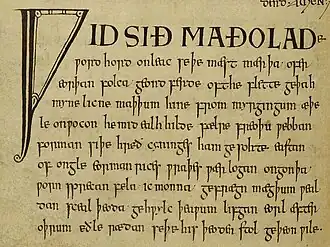 ǷIDSIÐ MAÐOLADE
ƿord hord onleac seþe mæst mærþa ofer
eorþan folca geond ferde oft he flette geþah
myne licne maþþum hine from myrgingum æþe
le onƿocon he mid ealh hilde fælre freoþu ƿebban
forman siþe hreð cyninges ham gesohte eastan
of ongle eorman rices ƿraþes ƿær logan ongon þa
ƿorn sprecan fela ic monna gefrægn mægþum ƿeal
dan sceal þeoda gehƿylc þeaƿum lifgan eorl æfter
oþrum eðle rædan seþe his þeoden stol geþeon ƿile